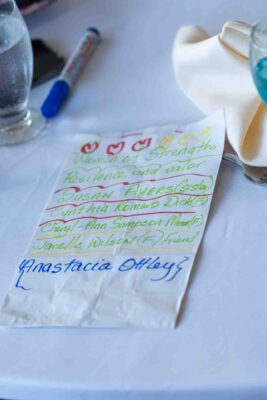 Women of Strength
Resilience and valor
SUSAN AYERS (Sister)
Cynthia Romero Dick (F)
Cheryl-Ann Sampson (F)
Janelle Wilson (F) friend
{Anastacia Ottley}